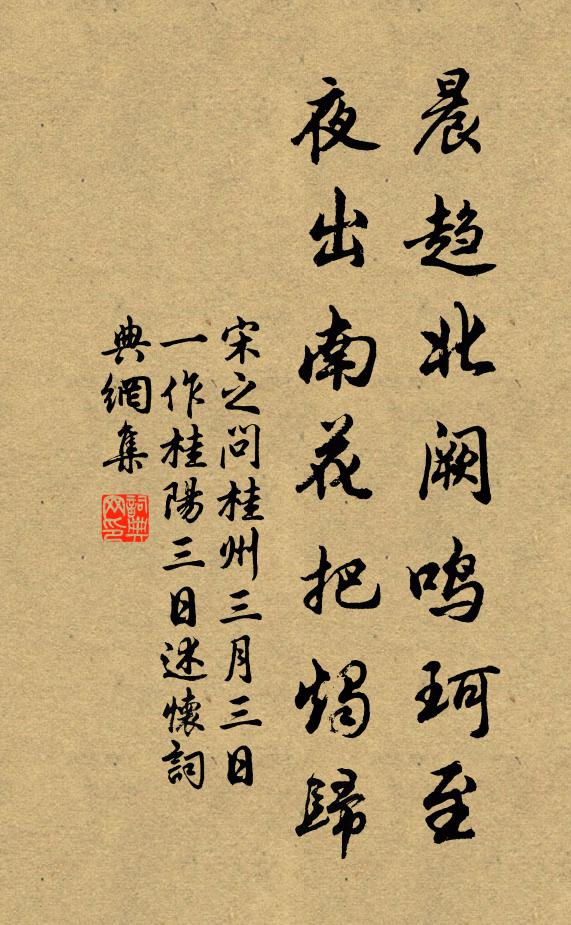 晨趋北阙鸣珂至
夜出南花把燭歸
宋之问桂州三月三日
一作桂陽三日述懷詞
典網集
詞典网印